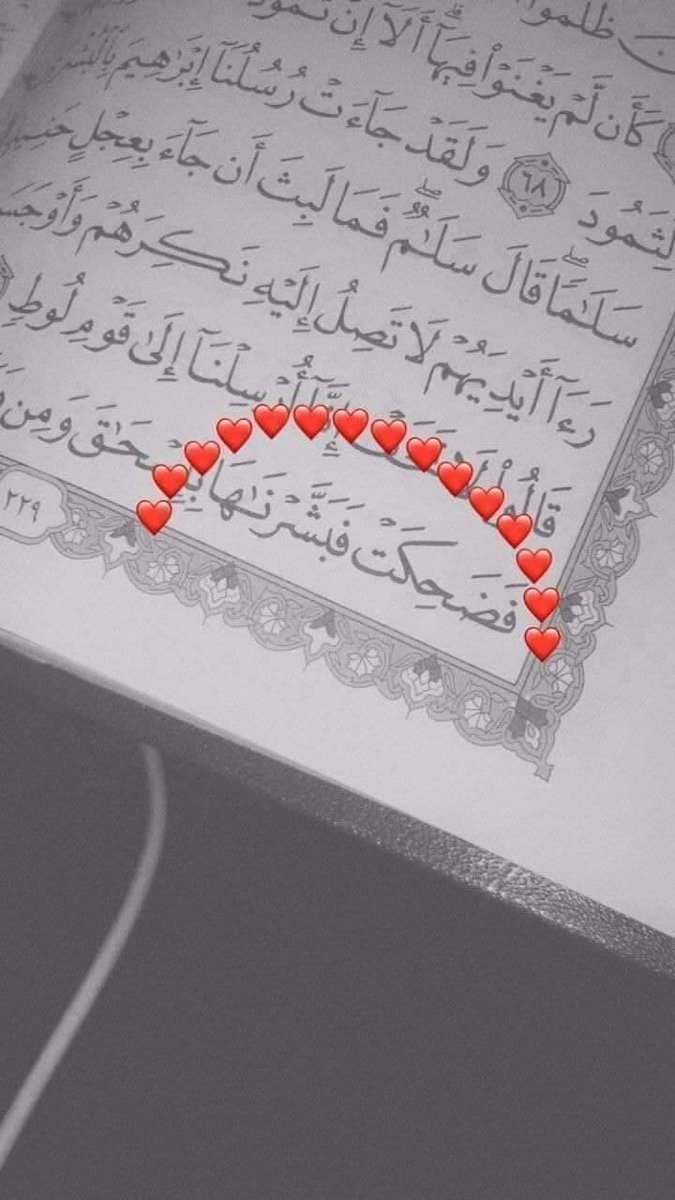 ظلموا
كَأَن لَّمْ يَغْنَوْا۟ فِيهَآ ۗ أَلَآ إِنَّ ثَمُودَا۟
لِّثَمُودَ ٦٨ وَلَقَدْ جَآءَتْ رُسُلُنَآ إِبْرَٰهِيمَ بِٱلْبُشْرَىٰ
سَلَٰمًا ۖ قَالَ سَلَٰمٌ ۖ فَمَا لَبِثَ أَن جَآءَ بِعِجْلٍ حَنِيذٍ
رَءَآ أَيْدِيَهُمْ لَا تَصِلُ إِلَيْهِ نَكِرَهُمْ وَأَوْجَسَ
قَالُوا۟ أُرْسِلْنَآ إِلَىٰ قَوْمِ لُوطٍ
فَضَحِكَتْ فَبَشَّرْنَٰهَا بِإِسْحَٰقَ وَمِن
٢٢٩